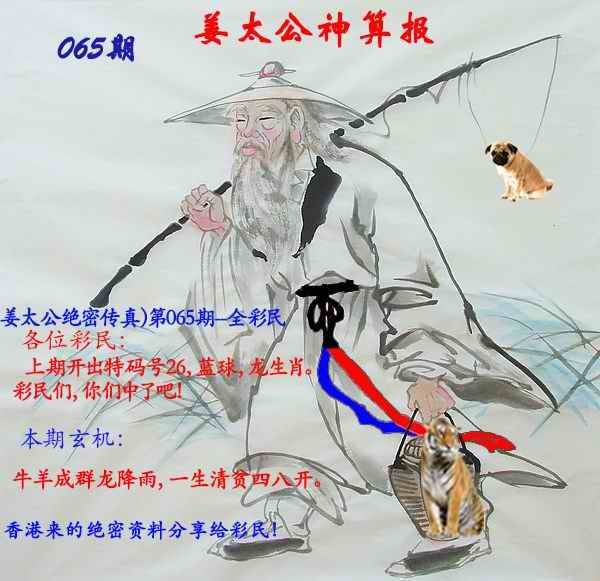 姜太公神算报
065期
姜太公绝密传真)第065期—全彩民
各位彩民:
上期开出特码号26,蓝球,龙生肖。
彩民们,你们中了吧!
本期玄机:
牛羊成群龙降雨,一生清贫四八开。
香港来的绝密资料分享给彩民!